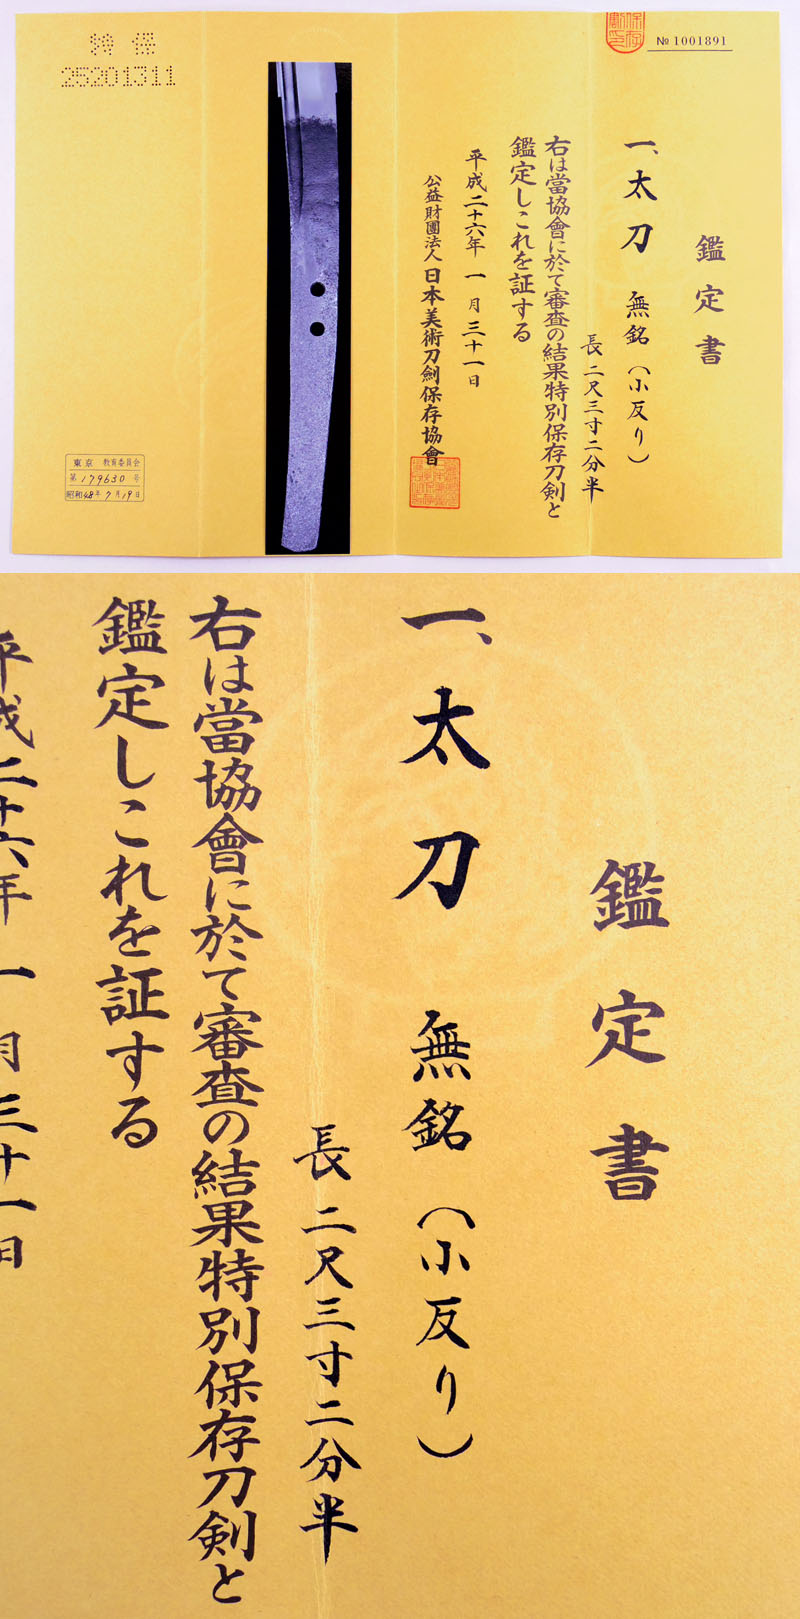 保存
№ 1001891
鑑定書
一、太刀 無銘（小反り）
長 二尺三寸二分半
右は當協會に於て審査の結果特別保存刀剣と
鑑定しこれを証する
平成二十六年 一月三十一日
公益財團法人 日本美術刀劍保存協會
特保
25201311
東京 教育委員会
第 179630 号
昭和48年7月19日
鑑定書
一、太刀 無銘（小反り）
長 二尺三寸二分半
右は當協會に於て審査の結果特別保存刀剣と
鑑定しこれを証する
平成二十六年 一月三十一日